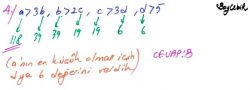 Bay Çelik
A) a>3b, b>2c, c>3d, d>5
118 39 39 19 19 6 6
(a'nın en küçük olması için CEVAP: B
d ye 6 değerini verdik)